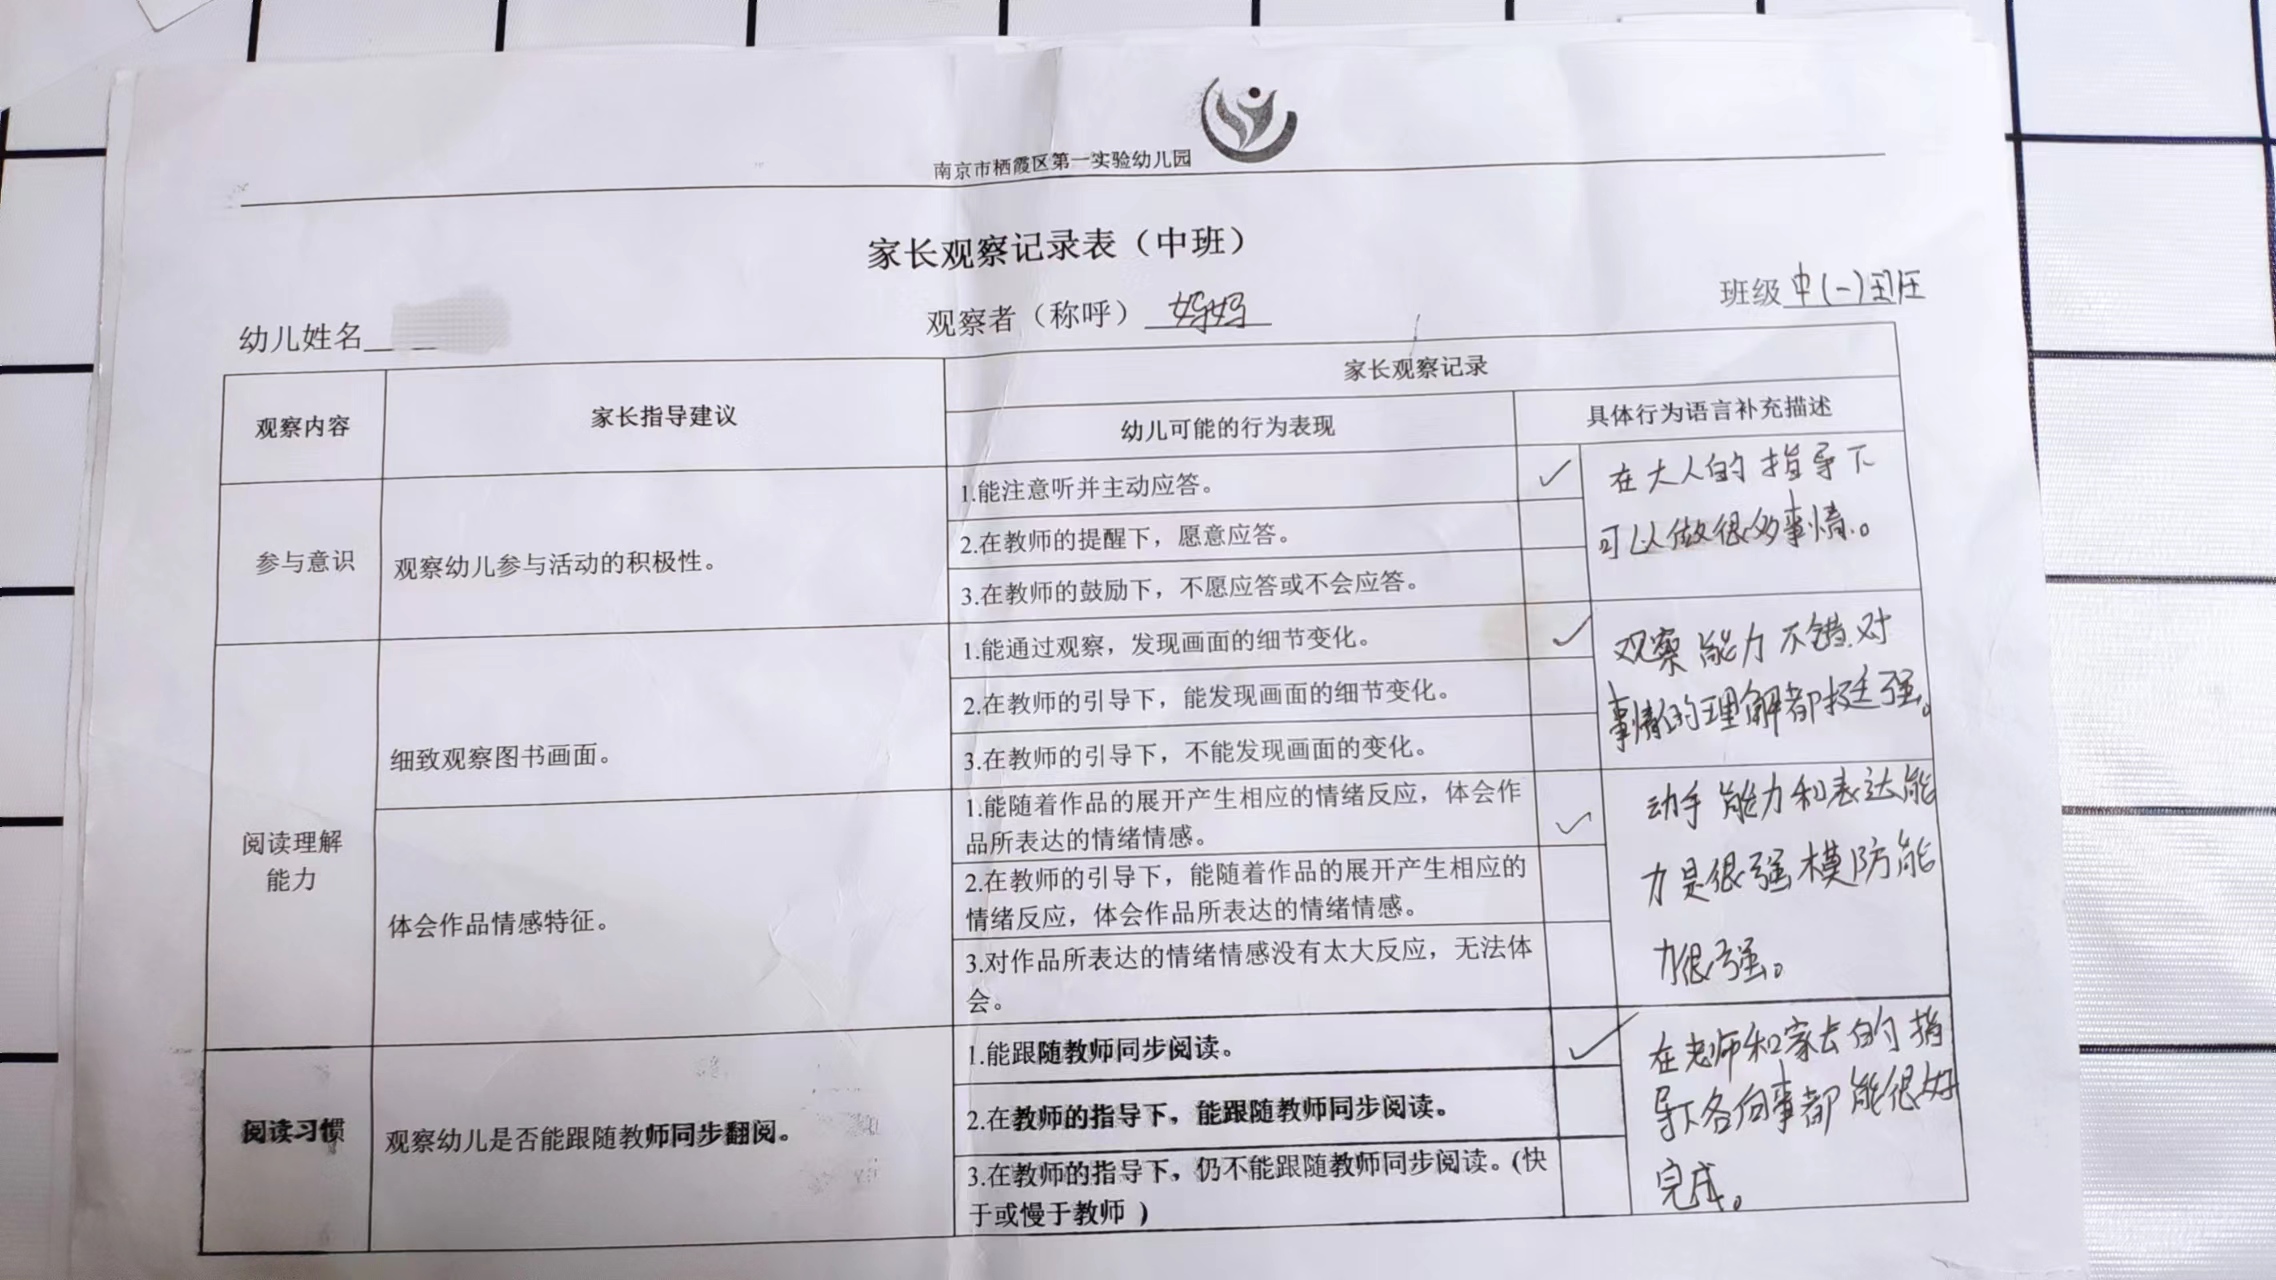 南京市栖霞区第一实验幼儿园
家长观察记录表（中班）
幼儿姓名
观察者（称呼）妈妈
班级中(一)班
观察内容
家长指导建议
家长观察记录
幼儿可能的行为表现
具体行为语言补充描述
参与意识
观察幼儿参与活动的积极性。
1.能注意听并主动应答。
✓
2.在教师的提醒下，愿意应答。
3.在教师的鼓励下，不愿应答或不会应答。
在大人的指导下
可以做很多事情。
阅读理解
能力
细致观察图书画面。
1.能通过观察，发现画面的细节变化。
✓
2.在教师的引导下，能发现画面的细节变化。
3.在教师的引导下，不能发现画面的变化。
观察能力不错.对
事情的理解都挺强。
体会作品情感特征。
1.能随着作品的展开产生相应的情绪反应，体会作
品所表达的情绪情感。
✓
2.在教师的引导下，能随着作品的展开产生相应的
情绪反应，体会作品所表达的情绪情感。
3.对作品所表达的情绪情感没有太大反应，无法体
会。
动手能力和表达能
力是很强模防能
力很强。
阅读习惯
观察幼儿是否能跟随教师同步翻阅。
1.能跟随教师同步阅读。
✓
2.在教师的指导下，能跟随教师同步阅读。
3.在教师的指导下，仍不能跟随教师同步阅读。(快
于或慢于教师 )
在老师和家长的指
导下各向事都能很好
完成。